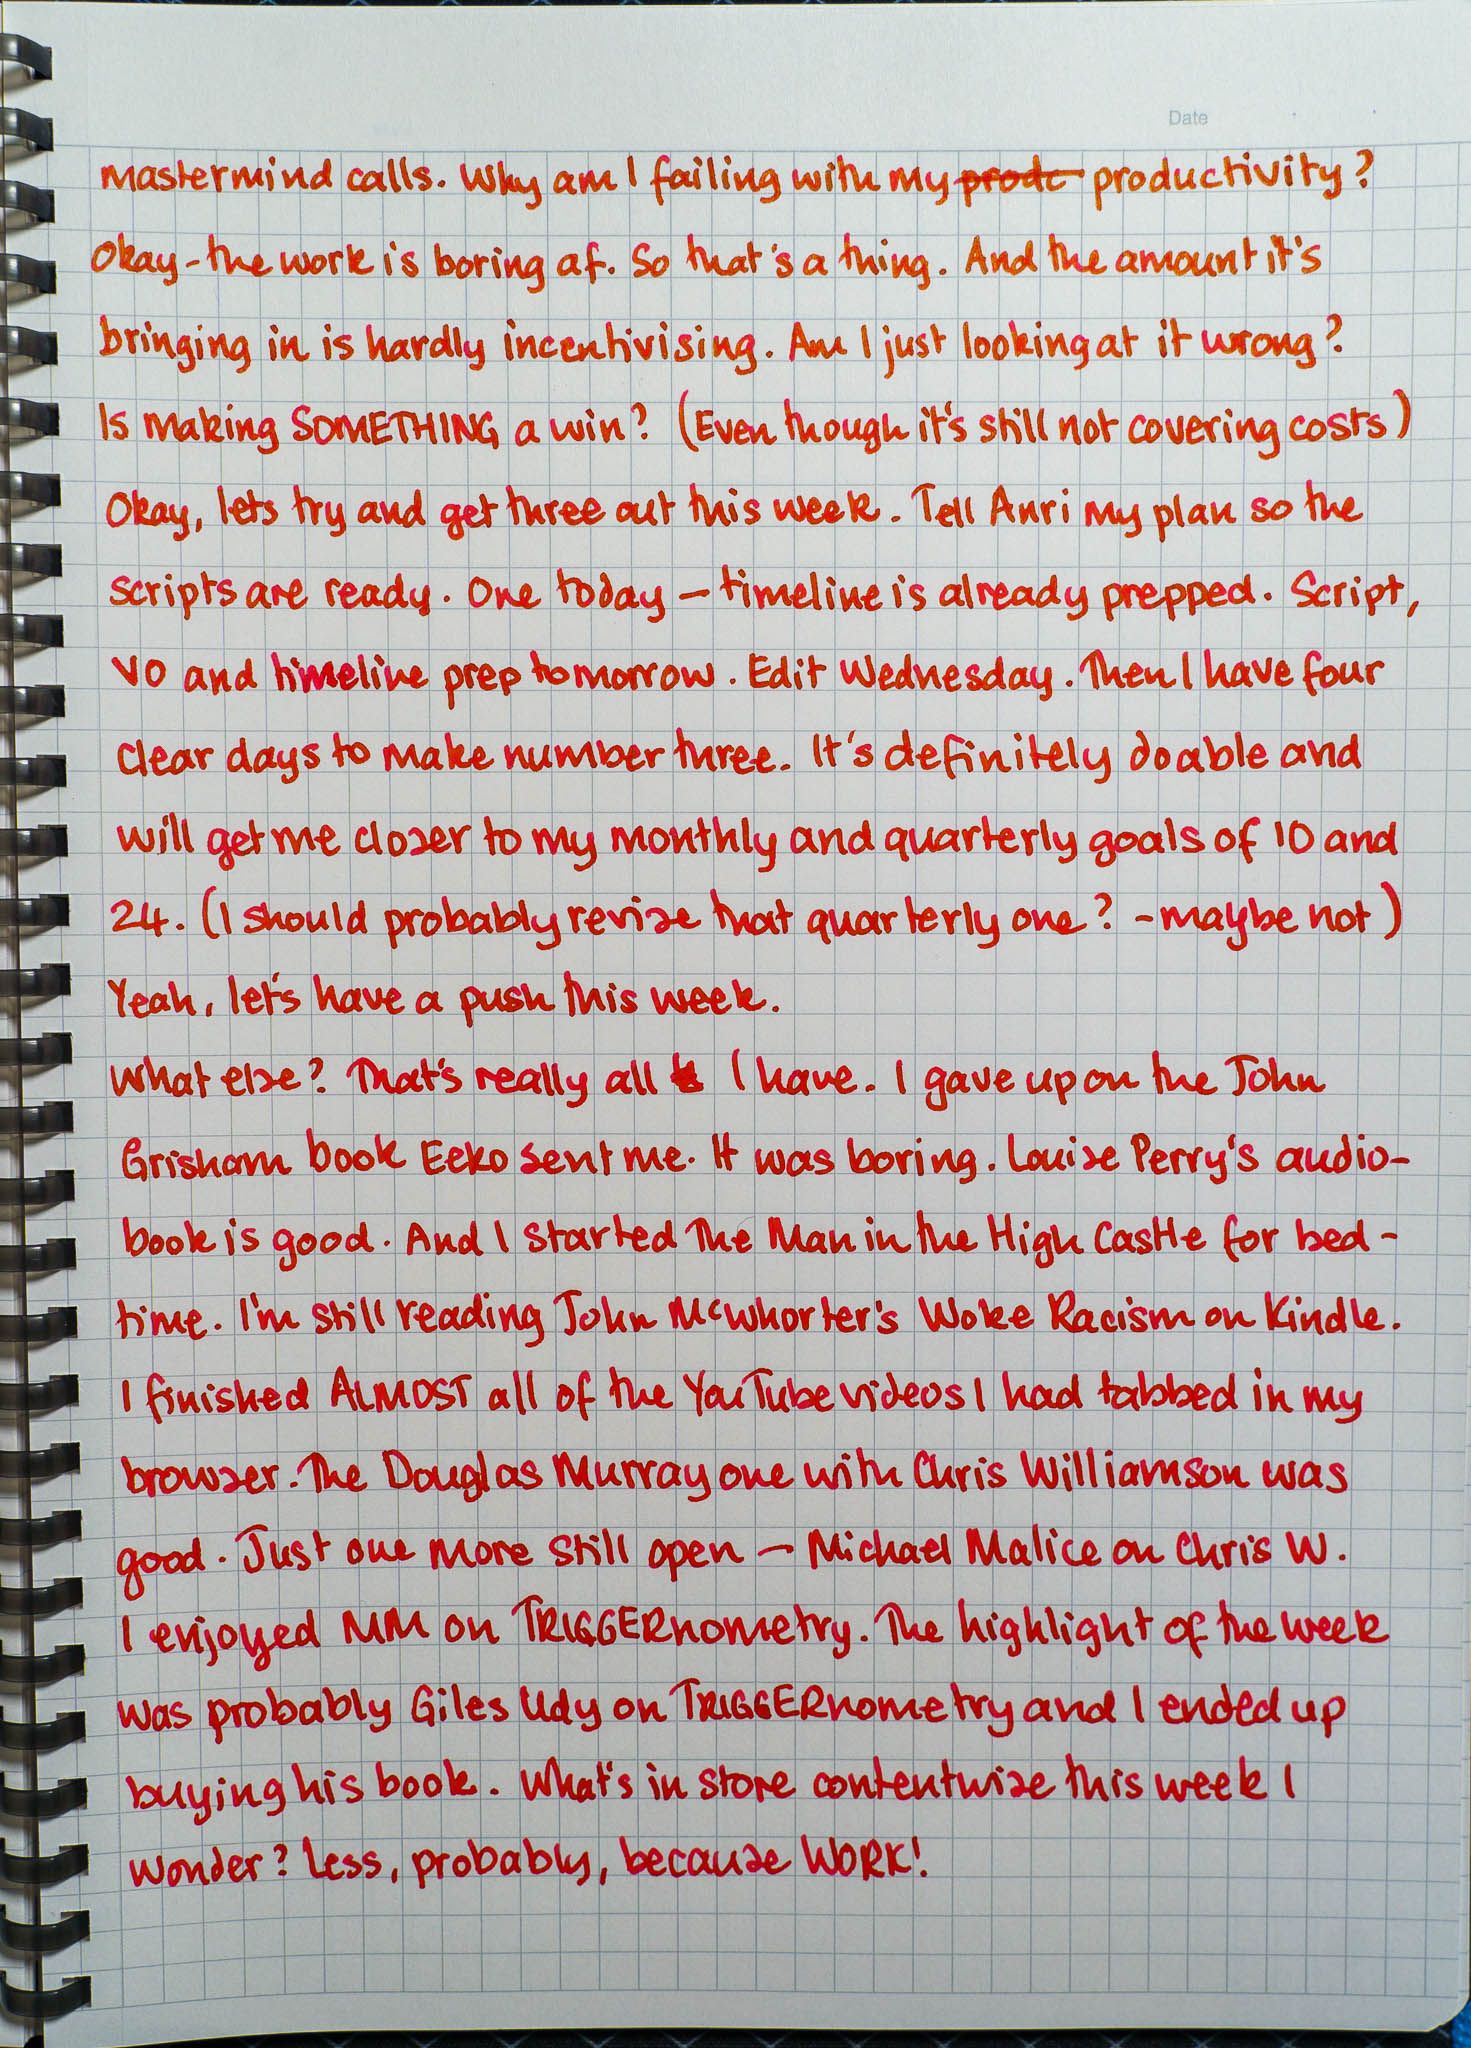 Date
mastermind calls. Why am I failing with my prodc productivity?
Okay - the work is boring af. So that's a thing. And the amount it's
bringing in is hardly incentivising. Am I just looking at it wrong?
Is making SOMETHING a win? (Even though it's still not covering costs)
Okay, lets try and get three out this week. Tell Anri my plan so the
scripts are ready. One today - timeline is already prepped. Script,
VO and timeline prep tomorrow. Edit Wednesday. Then I have four
clear days to make number three. It's definitely doable and
will get me closer to my monthly and quarterly goals of 10 and
24. (I should probably revise that quarterly one? - maybe not)
Yeah, let's have a push this week.
What else? That's really all I have. I gave up on the John
Grisham book Eeko sent me. It was boring. Louise Perry's audio-
book is good. And I started The Man in the High Castle for bed-
time. I'm still reading John McWhorter's Woke Racism on Kindle.
I finished ALMOST all of the YouTube videos I had tabbed in my
browser. The Douglas Murray one with Chris Williamson was
good. Just one more still open - Michael Malice on Chris W.
I enjoyed MM on TRIGGERnometry. The highlight of the week
was probably Giles Udy on TRIGGERnometry and I ended up
buying his book. What's in store contentwise this week I
wonder? Less, probably, because WORK!